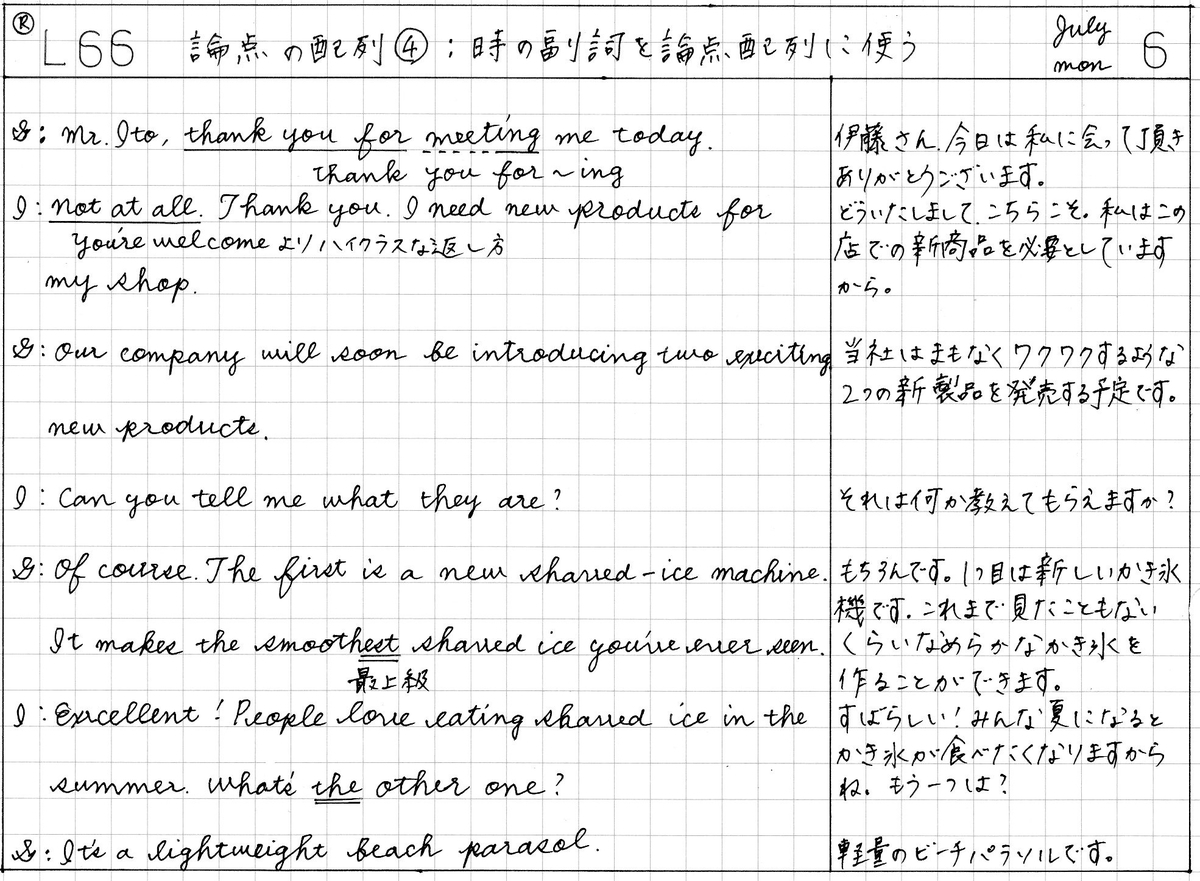 Ⓡ L66 論点の配列④:時の副詞を論点配列に使う July mon 6
S: Mr. Ito, thank you for meeting me today.
thank you for ~ing
I: Not at all. Thank you. I need new products for
you're welcome よりハイクラスな返し方
my shop.
S: Our company will soon be introducing two exciting
new products.
I: Can you tell me what they are?
S: Of course. The first is a new shaved-ice machine.
It makes the smoothest shaved ice you've ever seen.
最上級
I: Excellent! People love eating shaved ice in the
summer. What's the other one?
S: It's a lightweight beach parasol.
伊藤さん、今日は私に会って頂き
ありがとうございます。
どういたしまして、こちらこそ。私はこの
店での新商品を必要としています
から。
当社はまもなくワクワクするような
2つの新製品を発売する予定です。
それは何か教えてもらえますか?
もちろんです。1つ目は新しいかき氷
機です。これまで見たこともない
くらいなめらかなかき氷を
作ることができます。
すばらしい!みんな夏になると
かき氷が食べたくなりますから
ね。もう一つは?
軽量のビーチパラソルです。